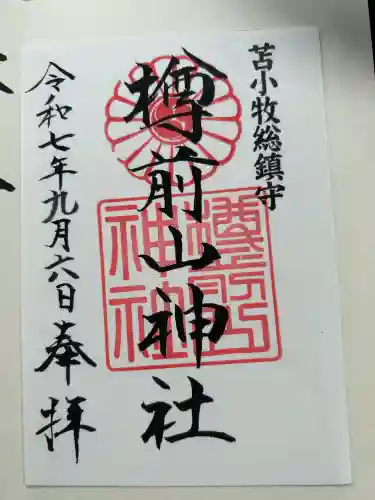 苫小牧総鎮守
樽前山神社
令和七年九月六日奉拝